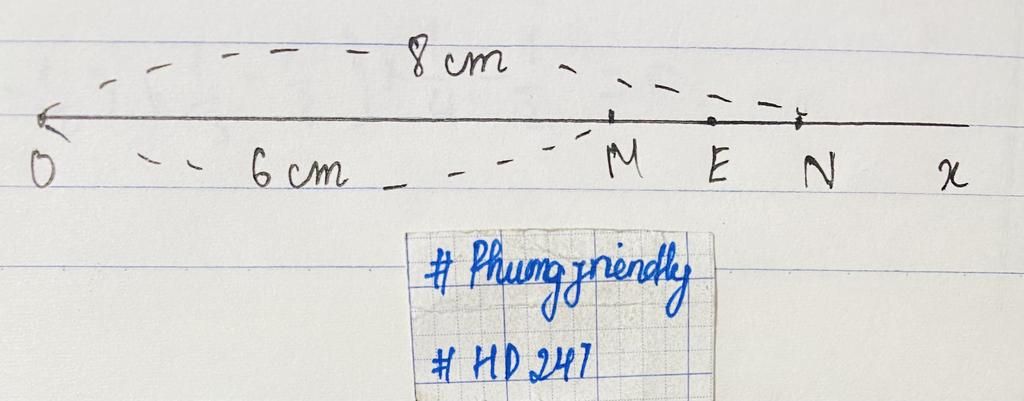 8 cm
6 cm
O M E N x
# Phungfriendly
# HD 247